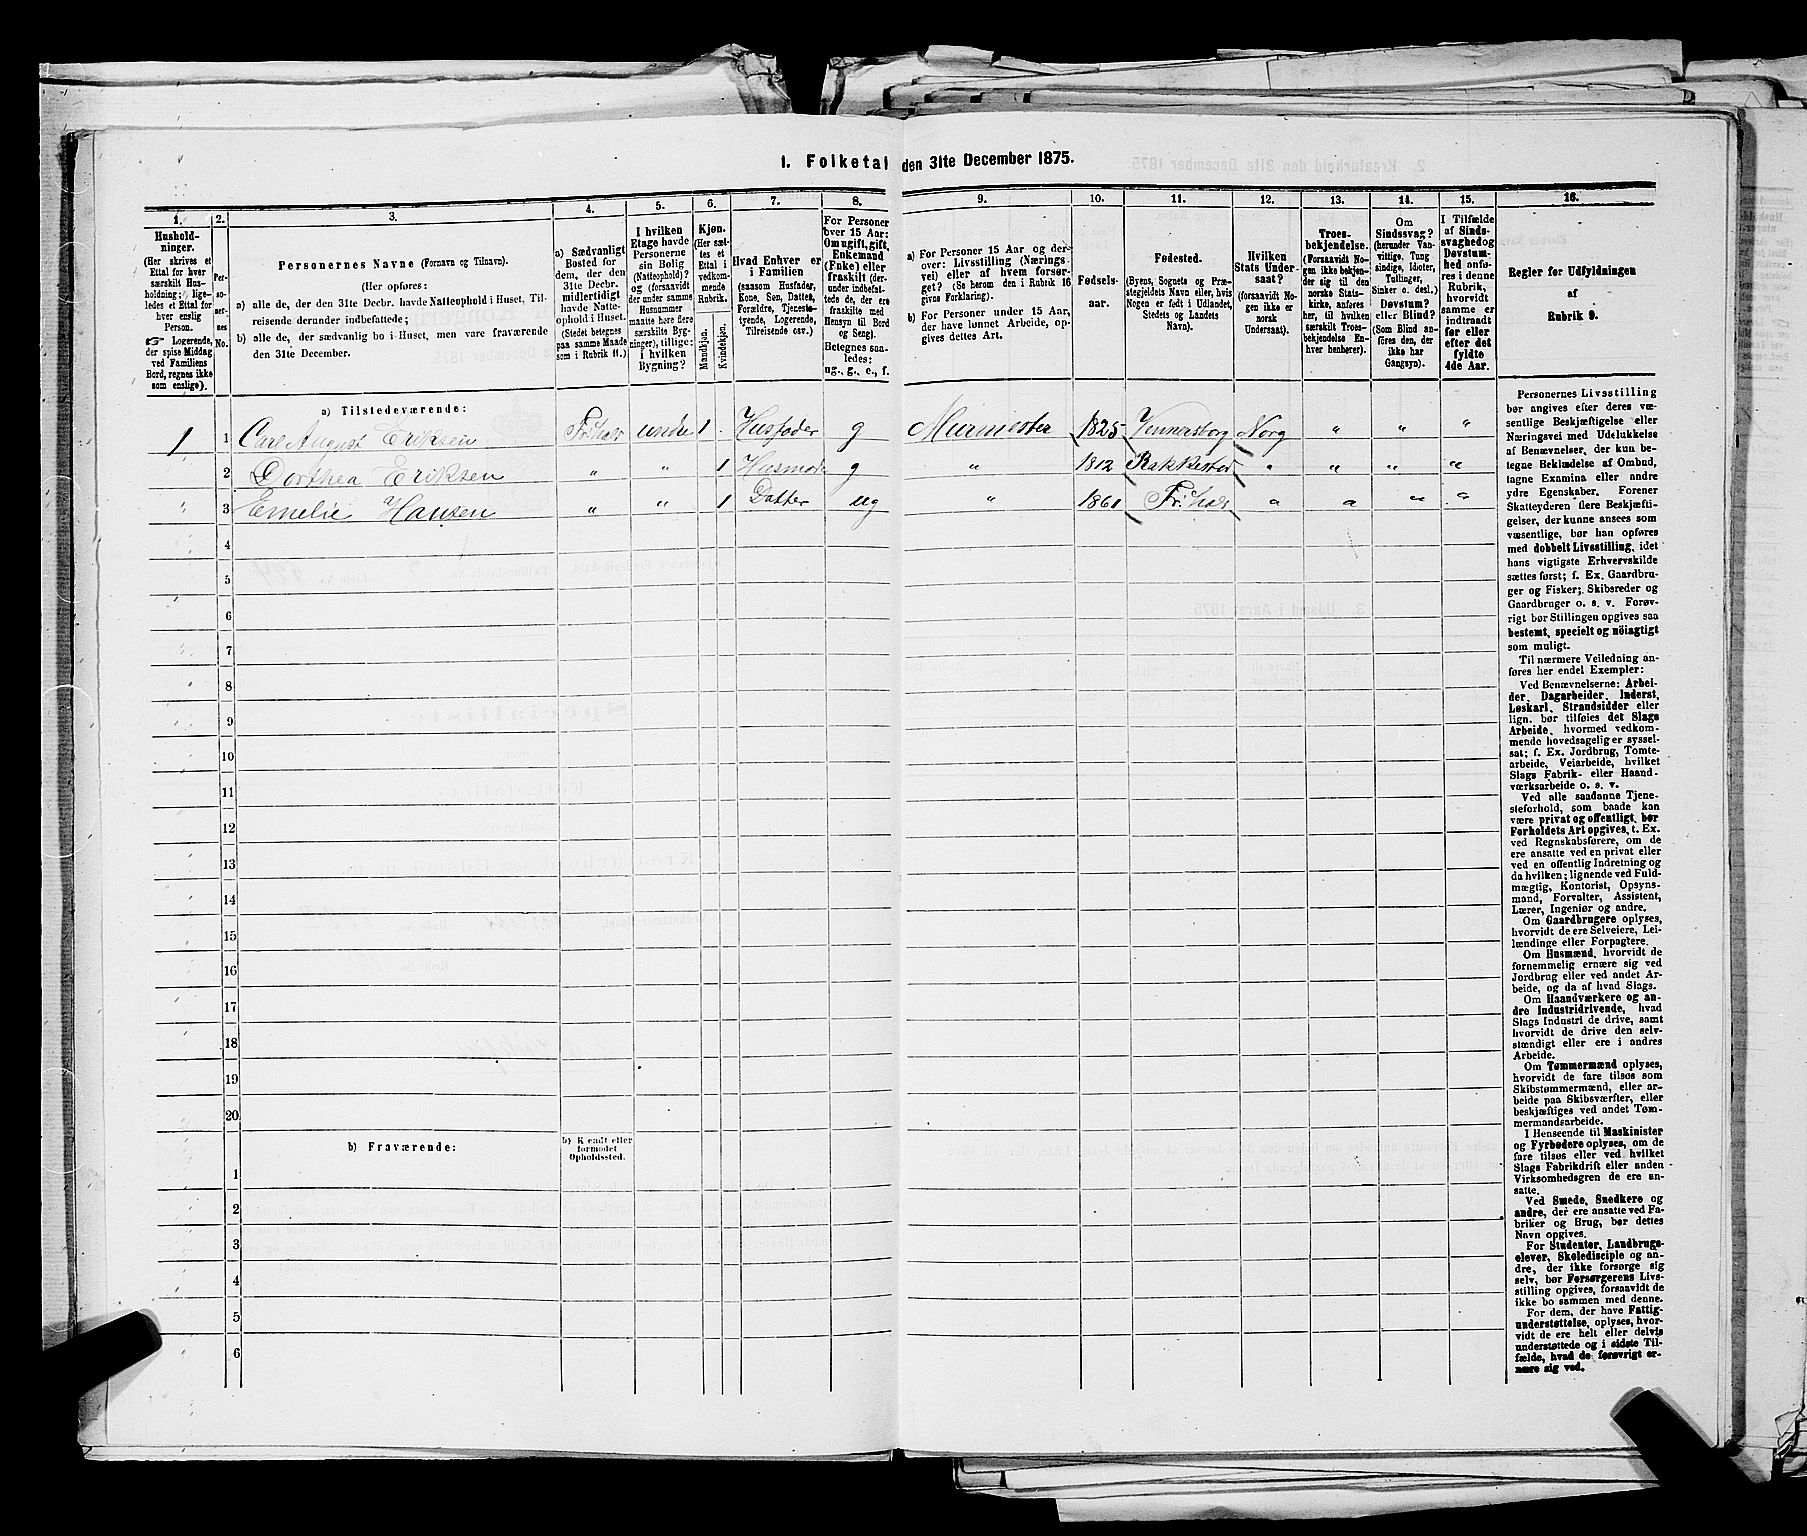 1. Folketal den 31te December 1875.
1. 2. 3. 4. 5. 6. 7. 8. 9. 10. 11. 12. 13. 14. 15. 16.
Hushold-
ninger.
(Her skrives et
Ettal for hver
særskilt Hus-
holdning; lige-
ledes et Ettal for
hver enslig
Person.
☞ Logerende,
der spise Middag
ved Familiens
Bord, regnes ikke
som enslige).
Per-
so-
ner-
nes
No.
Personernes Navne (Fornavn og Tilnavn).
(Her opføres:
a) alle de, der den 31te Decbr. havde Natteophold i Huset, Til-
reisende derunder indbefattede;
b) alle de, der sædvanlig bo i Huset, men vare fraværende
den 31te December.
a) Sædvanligt
Bosted for
dem, der den
31te Decbr.
midlertidigt
havde Natte-
ophold i Huset.
(Stedet betegnes
paa samme Maade
som i Rubrik 11.)
I hvilken
Etage havde
Personerne
sin Bolig
(Natteophold)?
og
(forsaavidt
der under samme
Husnummer
maatte høre flere
særskilte Byg-
ninger), tillige:
i hvilken
Bygning?
Kjøn.
(Her sæt-
tes et
Ettal i
vedkom-
mende
Rubrik.
Mandkjøn.
Kvindekjøn.
Hvad Enhver er
i Familien
(saasom Husfader,
Kone, Søn, Datter,
Forældre, Tjeneste-
tyende, Logerende,
Tilreisende osv.)
For Personer
over 15 Aar:
Om ugift, gift,
Enkemand
(Enke) eller
fraskilt (der-
under indbefat-
tede de, der ere
fraskilte med
Hensyn til Bord
og Seng).
Betegnes saa-
ledes:
ug., g., e., f.
a) For Personer 15 Aar og der-
over: Livsstilling (Nærings-
vei) eller af hvem forsør-
get? (Se herom den i Rubrik 16
givne Forklaring).
b) For Personer under 15 Aar,
der have lønnet Arbeide, op-
gives dettes Art.
Fødsels-
aar.
Fødested.
(Byens, Sognets og Præ-
stegjeldets Navn eller, hvis
Nogen er født i Udlandet,
Stedets og Landets
Navn).
Hvilken
Stats Under-
saat?
(forsaavidt No-
gen ikke er
norsk
Undersaat).
Troes-
bekjendelse.
(Forsaavidt No-
gen ikke bekjen-
der sig til den
norske Stats-
kirke, anføres
her, til hvilken
særskilt Troes-
bekjendelse En-
hver henhører).
Om
Sindssvag?
(herunder Van-
vittige, Tung
sindige, Idioter,
Tullinger,
Sinker o. desl.)
Døvstum?
eller Blind?
(Som Blind an-
føres den, der
ikke har
Gangsyn).
I Tilfælde
af Sinds-
svaghed og
Døvstum-
hed anfø-
res i denne
Rubrik,
hvorvidt
samme er
indtraadt
før eller
efter det
fyldte
4de Aar.
Regler for Udfyldningen
af
Rubrik 9.
a) Tilstedeværende:
1 1 Carl August Eriksen Fr:hald under 1 . Husfader g Murmester 1825 Vennersborg Norg " " "
2 Dorthea Eriksen " " 1 Husmod. g " 1812 Rakkestad " " " "
3 Emelie Hansen " " 1 Datter ug " 1861 Fr:hald " " " "
4
5
6
7
8
9
10
11
12
13
14
15
16
17
18
19
20
b) Fraværende:
b) Kjendt eller
formodet
Opholdssted.
1
2
3
4
5
6
Personernes Livsstilling
bør angives efter deres væ-
sentlige Beskjæftigelse eller
Næringsvei med Udelukkelse
af Benævnelser, der kun be-
tegne Beklædelse af Ombud,
tagne Examina eller andre
ydre Egenskaber. Forener
Skatteyderen flere Beskjæfti-
gelser, der kunne ansees som
væsentlige, bør han opføres
med dobbelt Livsstilling, idet
hans vigtigste Erhvervskilde
sættes først; f. Ex. Gaardbru-
ger og Fisker; Skibsreder og
Gaardbruger o. s. v. Forøv-
rigt bør Stillingen opgives saa
bestemt, specielt og nöiagtigt
som muligt.
Til nærmere Veiledning an-
føres her endel Exempler:
Ved Benævnelserne: Arbei-
der, Dagarbeider, Inderst,
Løskarl, Strandsidder eller
lign. bør tilføies det Slags
Arbeide, hvormed vedkom-
mende hovedsagelig er syssel-
sat; f. Ex. Jordbrug, Tomte-
arbeide, Veiarbeide, hvilket
Slags Fabrik- eller Haand-
værksarbeide o. s. v.
Ved alle saadanne Tjene-
steforhold, som baade kan
være privat og offentligt, bør
Forholdets Art opgives, t. Ex.
ved Regnskabsførere, om de
ere ansatte ved en privat eller
ved en offentlig Indretning og
da hvilken; lignende ved Fuld-
mægtig, Kontorist, Opsyns-
mand, Forvalter, Assistent,
Lærer, Ingeniør og andre.
Om Gaardbrugere oplyses,
hvorvidt de ere Selveiere, Lei-
lændinge eller Forpagtere.
Om Husmænd, hvorvidt de
fornemmelig ernære sig ved
Jordbrug eller ved andet Ar-
beide, og da af hvad Slags.
Om Haandværkere og an-
dre Industridrivende, hvad
Slags Industri de drive, samt
hvorvidt de drive den selv-
stændigt eller ere i andres
Arbeide.
Om Tømmermænd oplyses,
hvorvidt de fare tilsøs som
Skibstømmermænd, eller ar-
beide paa Skibsværfter, eller
beskjæftiges ved andet Tøm-
mermandsarbeide.
I Henseende til Maskinister
og Fyrbødere oplyses, om de
fare tilsøs eller ved hvilket
Slags Fabrikdrift eller anden
Virksomhedsgren de ere an-
satte.
Ved Smede, Snedkere og
andre, der ere ansatte ved Fa-
briker og Brug, bør dettes
Navn opgives.
For Studenter, Landbrugs-
elever, Skoledisciple og an-
dre, der ikke forsørge sig
selv, bør Forsørgerens Livs-
stilling opgives, forsaavidt de
ikke bo sammen med denne.
For dem, der have Fattig-
understøttelse, oplyses, hvor-
vidt de ere helt eller delvis
understøttede og i sidste Til-
fælde, hvad de forøvrigt er-
nære sig ved.